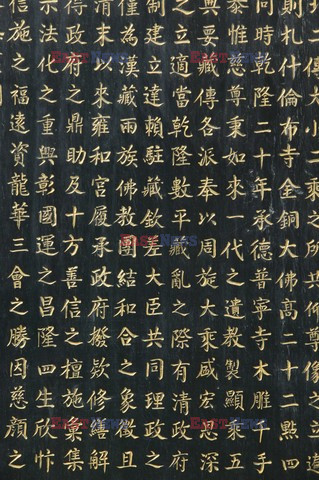 傳大小二乘之所共仰尊像造
則札什倫布寺金銅大佛高二十二點四
同時乾隆二十年承德普寧寺木雕千手
泰惟慈尊秉如來一代之遺教製顯乘五
與要藏傳各派奉以周旋大乘咸宏恩深
之立適當乾隆數平藏亂之際有清政府
制建立達賴駐藏欽差大臣共同理政之
僅為漢藏兩族佛教團結和合之象徵且
清末以來雍和宮屢承政府撥欵修繕解
得政府之鼎助及十方善信之檀施彙集
示法化之重興彰國運之昌隆四生欣忭
信施之福遠資龍華三會之勝因慈顏之
EAST NEWS